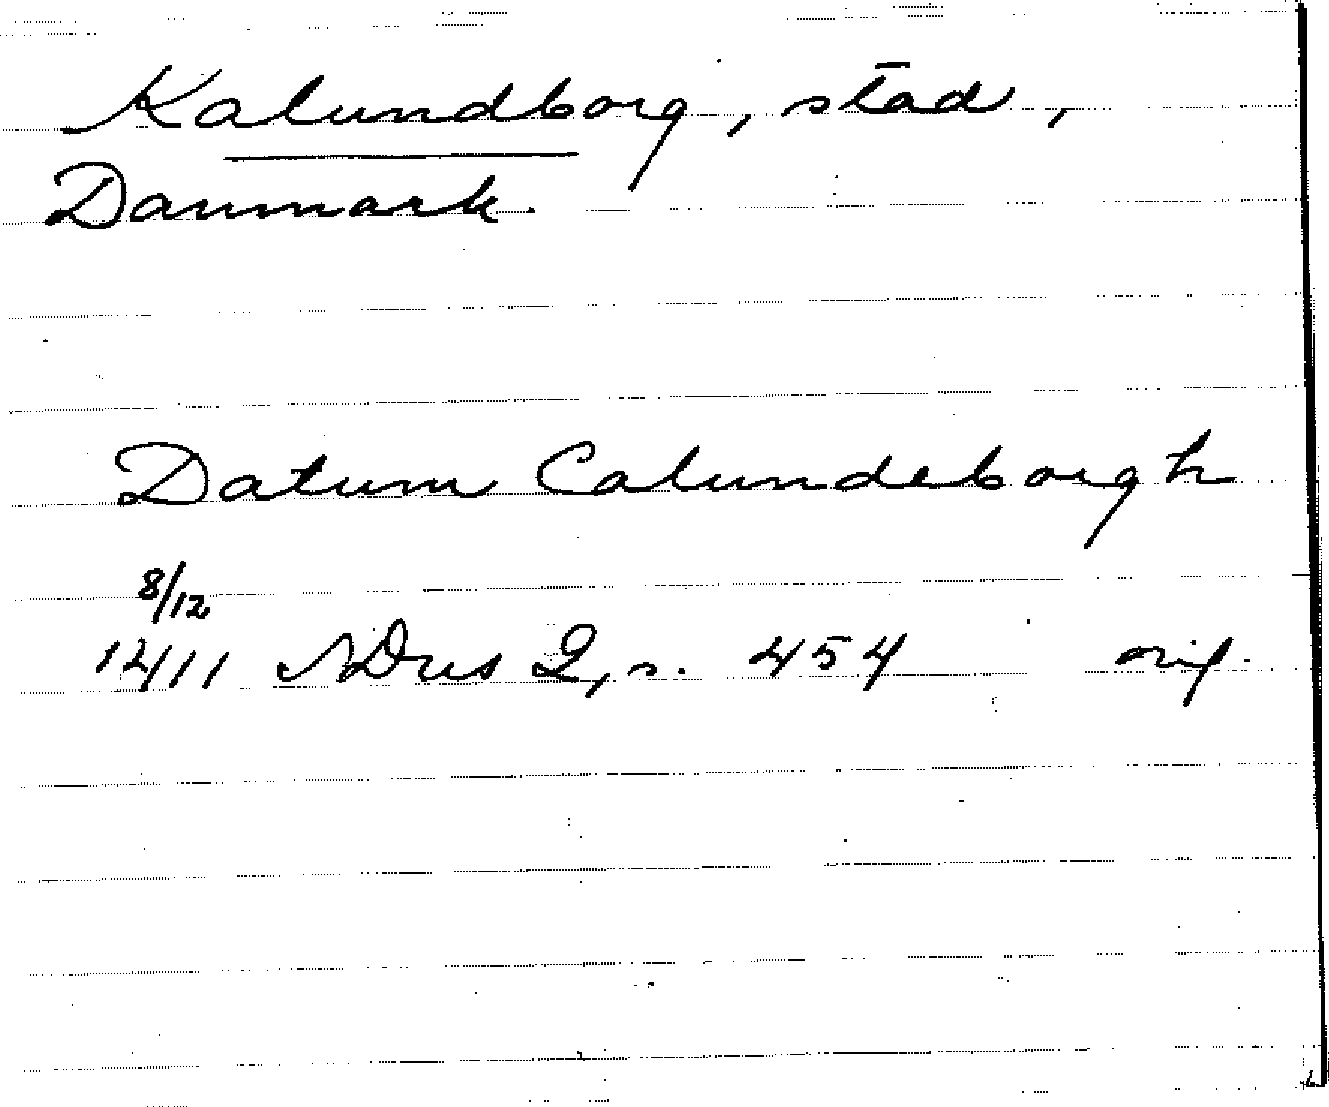 Kalundborg, stad,
Danmark.
Datum Calundeborgh
8/12
1411 SDns 2, s. 454 orig.